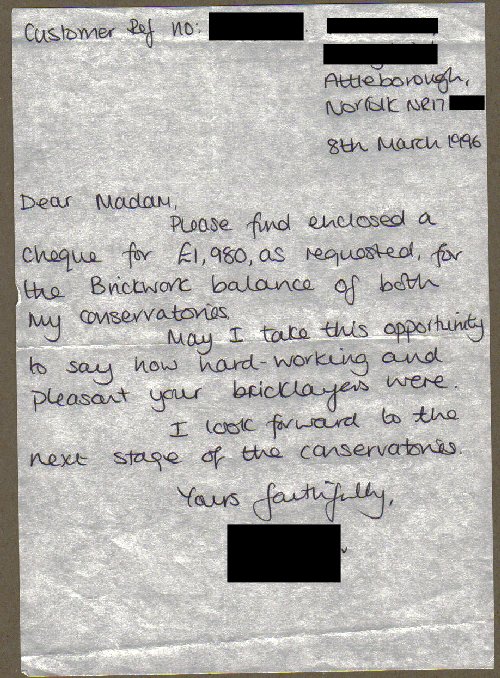 Customer Ref no:
Attleborough,
Norfolk NR17
8th March 1996
Dear Madam,
Please find enclosed a
cheque for £1,980, as requested, for
the Brickwork balance of both
my conservatories.
May I take this opportunity
to say how hard-working and
pleasant your bricklayers were.
I look forward to the
next stage of the conservatories.
Yours faithfully,